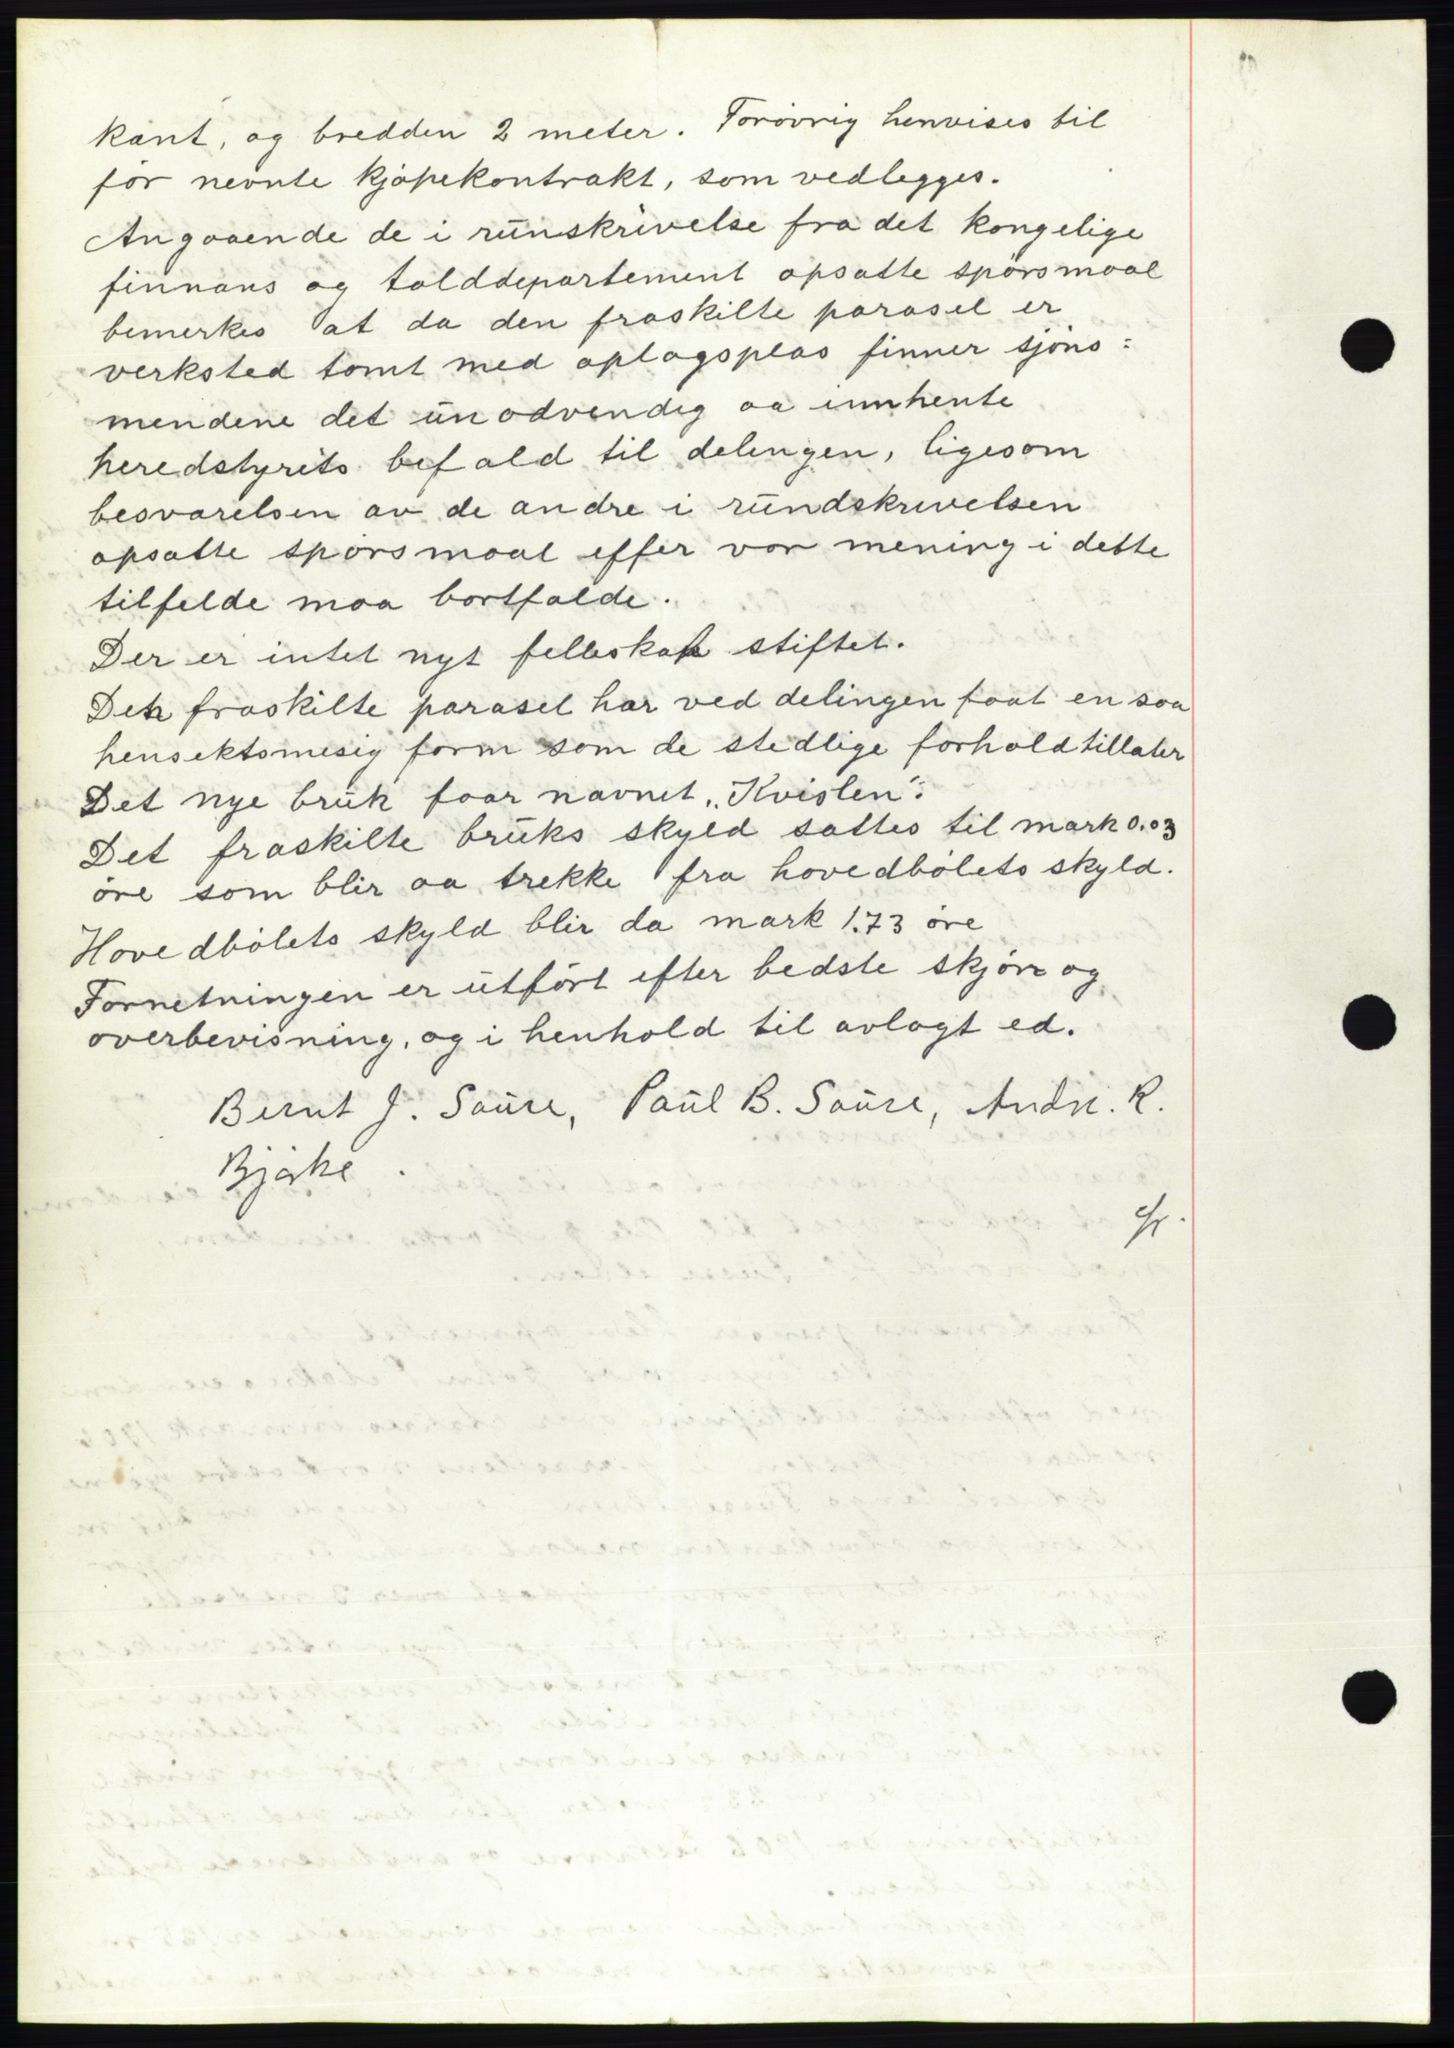 kant, og bredden 2 meter. Forövrig henvises til
för nevnte kjöpekontrakt, som vedlegges.
Angaaende de i runskrivelse fra det kongelige
finnans og tolddepartement opsatte spörsmaal
bemerkes at da den fraskilte parasel er
verksted tomt med oplagsplas finner sjöns=
mendene det unödvendig aa innhente
heredstyrets befald til delingen, ligesom
besvarelsen av de andre i rundskrivelsen
opsatte spörsmaal effer vor mening i dette
tilfelde maa bortfalde.
Der er intet nyt felleskap stiftet.
Den fraskilte parasel har ved delingen faat en saa
hensektsmesig form som de stedlige forhold tillater
Det nye bruk faar navnet „Kvislen".
Det fraskilte bruks skyld sattes til mark 0.03
öre som blir aa trekke fra hovedbölets skyld.
Hovedbölets skyld blir da mark 1.73 öre
Forretningen er utfört efter bedste skjön og
overbevisning, og i henhold til avlagt ed.
Bernt J. Saure, Paul B. Saure, Andr. R.
Bjørke.